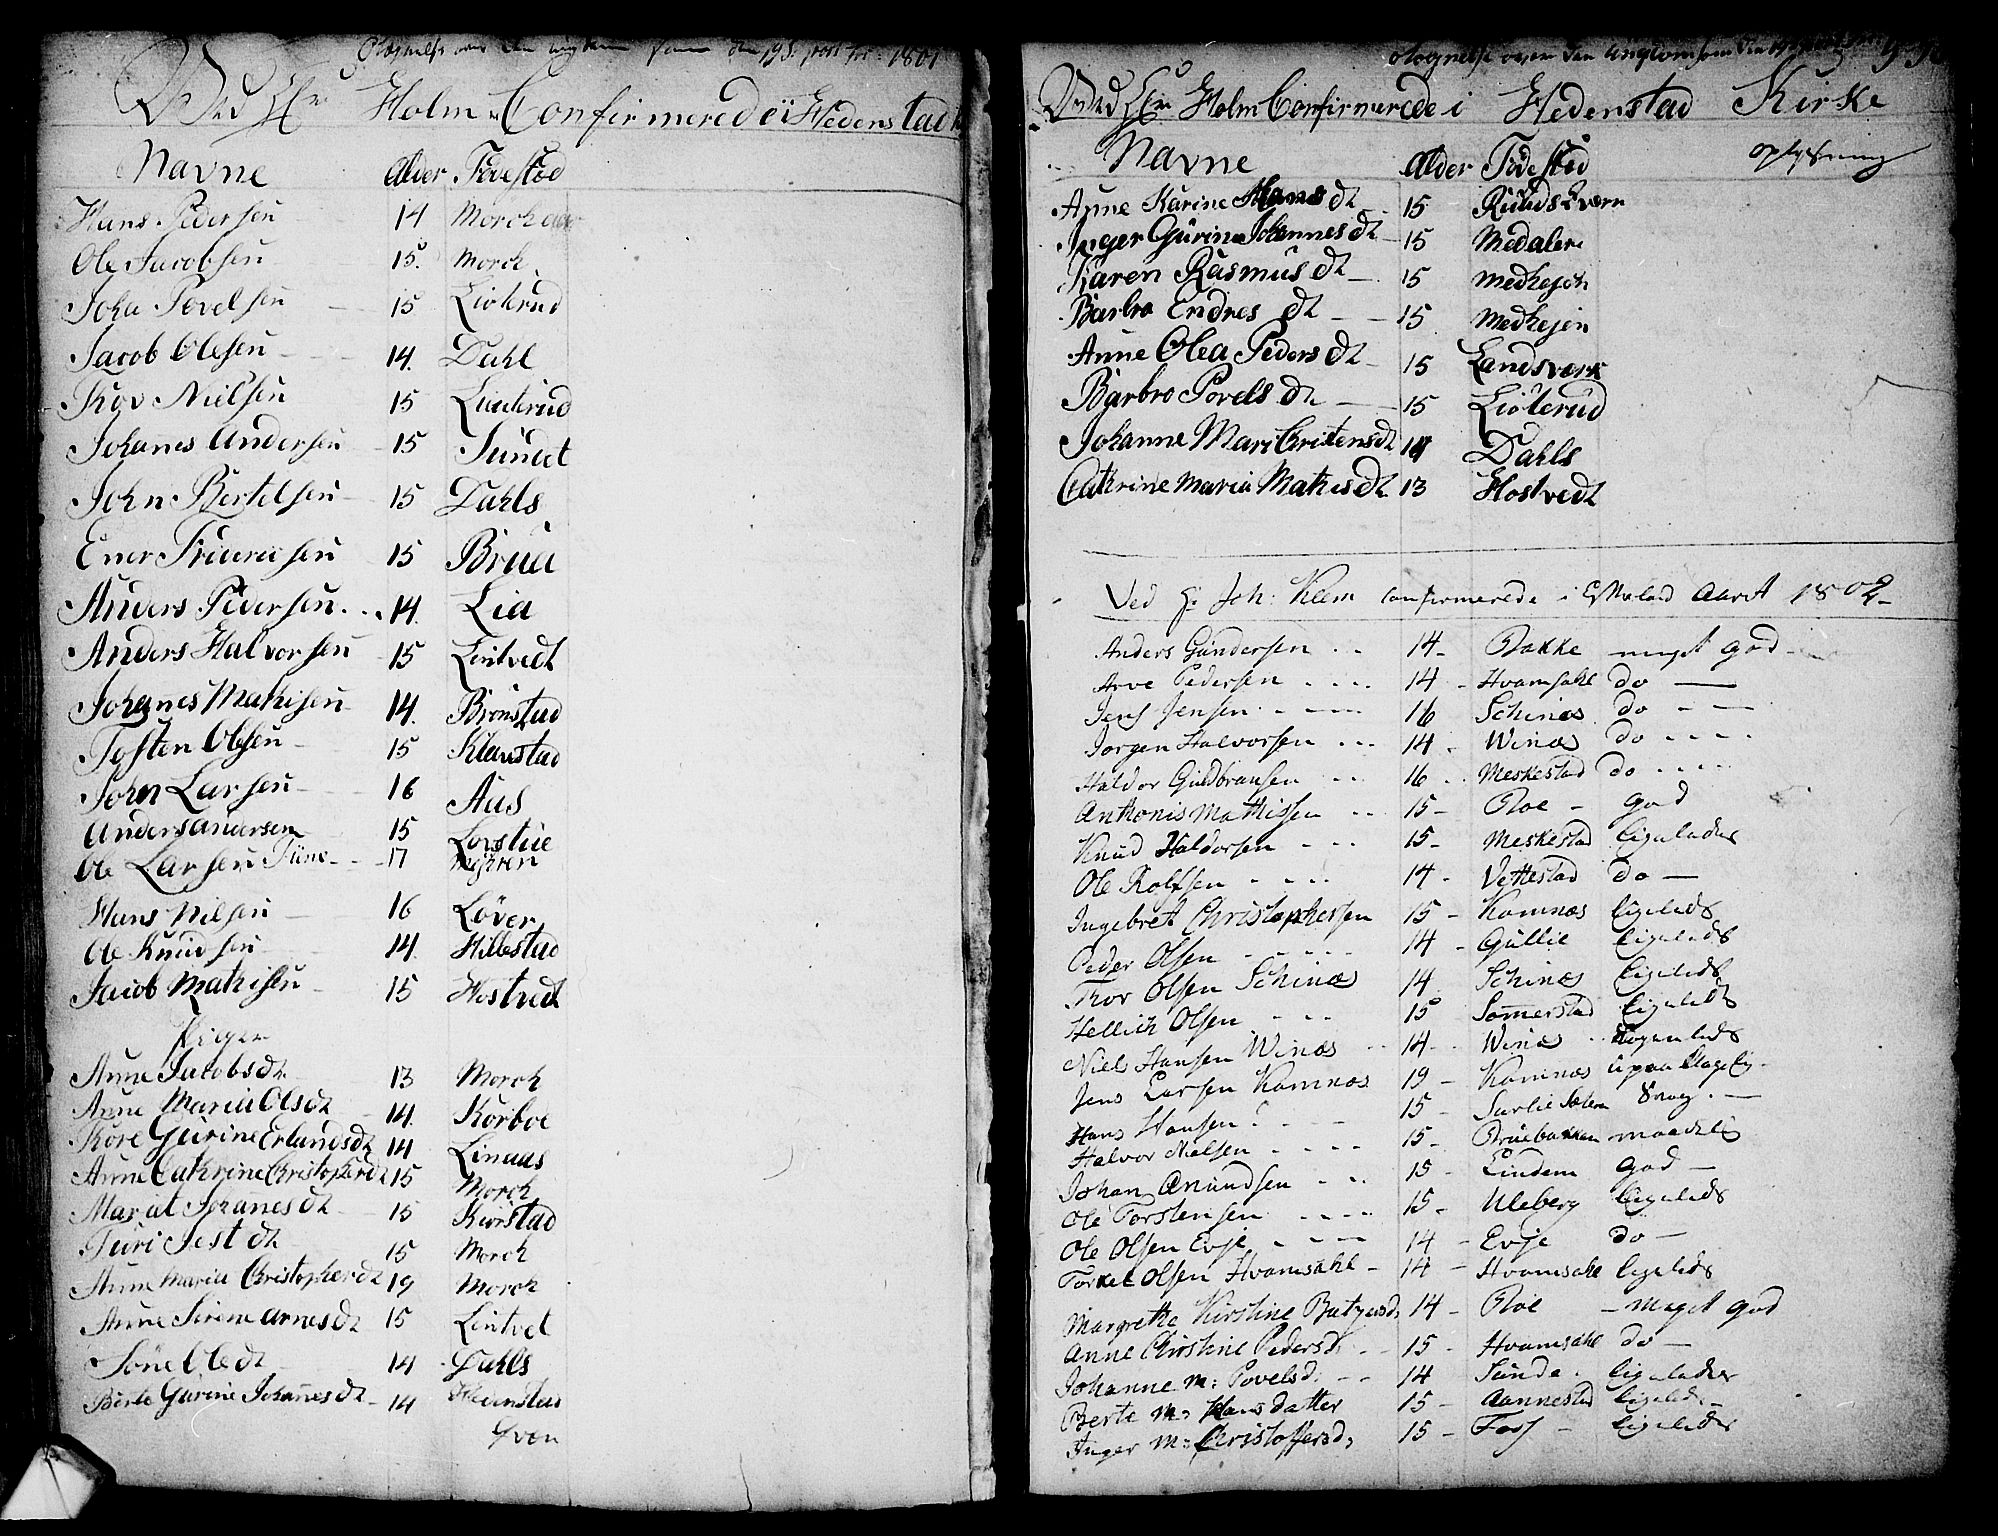 1801
Ved Hr Holm Confirmerede i Hedenstad
Navne Alder Födestöd
Hans Pedersen 14 Morch
Ole Jacobsen 15. Morch
Joha Povelsen 15 Liöterud
Jacob Olesen 14. Dahl
Thov Nielsen 15 Linterud
Johanes Andersen 15 Sundet
John Bertelsen 15 Dahls
Ener 15 Brua
Anders Pedersen 14. Lia
Anders Halvorsen 15 Lintvedt
Johannes Mathisen 14. Brönstad
Tosten Olesen 15 Klavestad
John Larsen 16 Aas
Anders Andersen 15 Lovstue
Ole Larsen 17
Hans Nilsen 16 Löver
Ole Knudsen 14. Hillestad
Jacob Mathisen 15 Hostvedt
Piger
Anne Jacobsdt 13 Morch
Anne Maria Olsdt 14. Korboe
Kore Gurine Erlandsdt 14 Linaas
Anne Cathrine Christopherdt 15 Morch
Mariat Johannesdt 15 Kiorstad
Turi Jestdt 15 Morch
Anne Maria Christopherdt 19 Morch
Anne Sirene Arnesdt 15 Lintvet
Söne Oledt 14 Dahls
Berte Gurine Johannesdt 14 Hedenstad
Ved Hr Holm Confirmerede i Hedenstad Kirke
Navne Alder Födestöd oplysning
Anne Karine Hansdt 15
Inger Gurine Johannesdt 15 Medalen
Karen Rasmusdt 15 Medhejen
Barbro Endresdt 15 Medhejen
Anne Olea Pedersdt 15 Landsværk
Barbro Povelsdt 15 Liöterud
Johanne Mari Cristensdt 14 Dahls
Cathrine Maria Mathisdt 13 Hostvedt
Ved Hr Joh: Klem Confirmerede i Efteløt Aaret 1802
Anders Gundersen 14 Bakke meget god
Arve Pedersen 14 Hvamsahl do
Jens Jensen 16 Schinæs do
Jörgen Halvorsen 14 Winæs do
Haldor Guldbransen 16 Meskestad do
Anthonis Mathissen 15 Roe god
Knud Haldorsen 15 Meskestad ligeledes
Ole Rolfsen 14 Vettestad do
Ingebret Christophersen 15 Komnæs ligeleds
Peder Olsen 14 Gullie ligeleds
Thor Olsen Schinæs 14 Schinæs ligeleds
Hellich Olsen 15 Sommerstad ligeleds
Niels Hansen Winæs 14 Winæs
Jens Larsen Komnæs 19 Komnæs upaaklagelig
Hans Hansen 15
Halvor Nielsen 15 Bruebakken maadelig
Johan Anundsen 15 Lindem god
Ole Torstensen 15 Uleberg ligeleds
Ole Olsen Evje 14 Evje do
Torkel Olsen Hvamsahl 14 Hvamsahl ligeleds
Margrethe Kirstine 14 Roe meget god
Anne Chirstine Pedersd: 15 Hvamsahl do
Johanne M: Povelsd. 14 Sunde ligeledes
Berte M: Hansdatter 15 Aannestad ligeleds
Inger M: Christoffersd: 15 Foss ligeledes